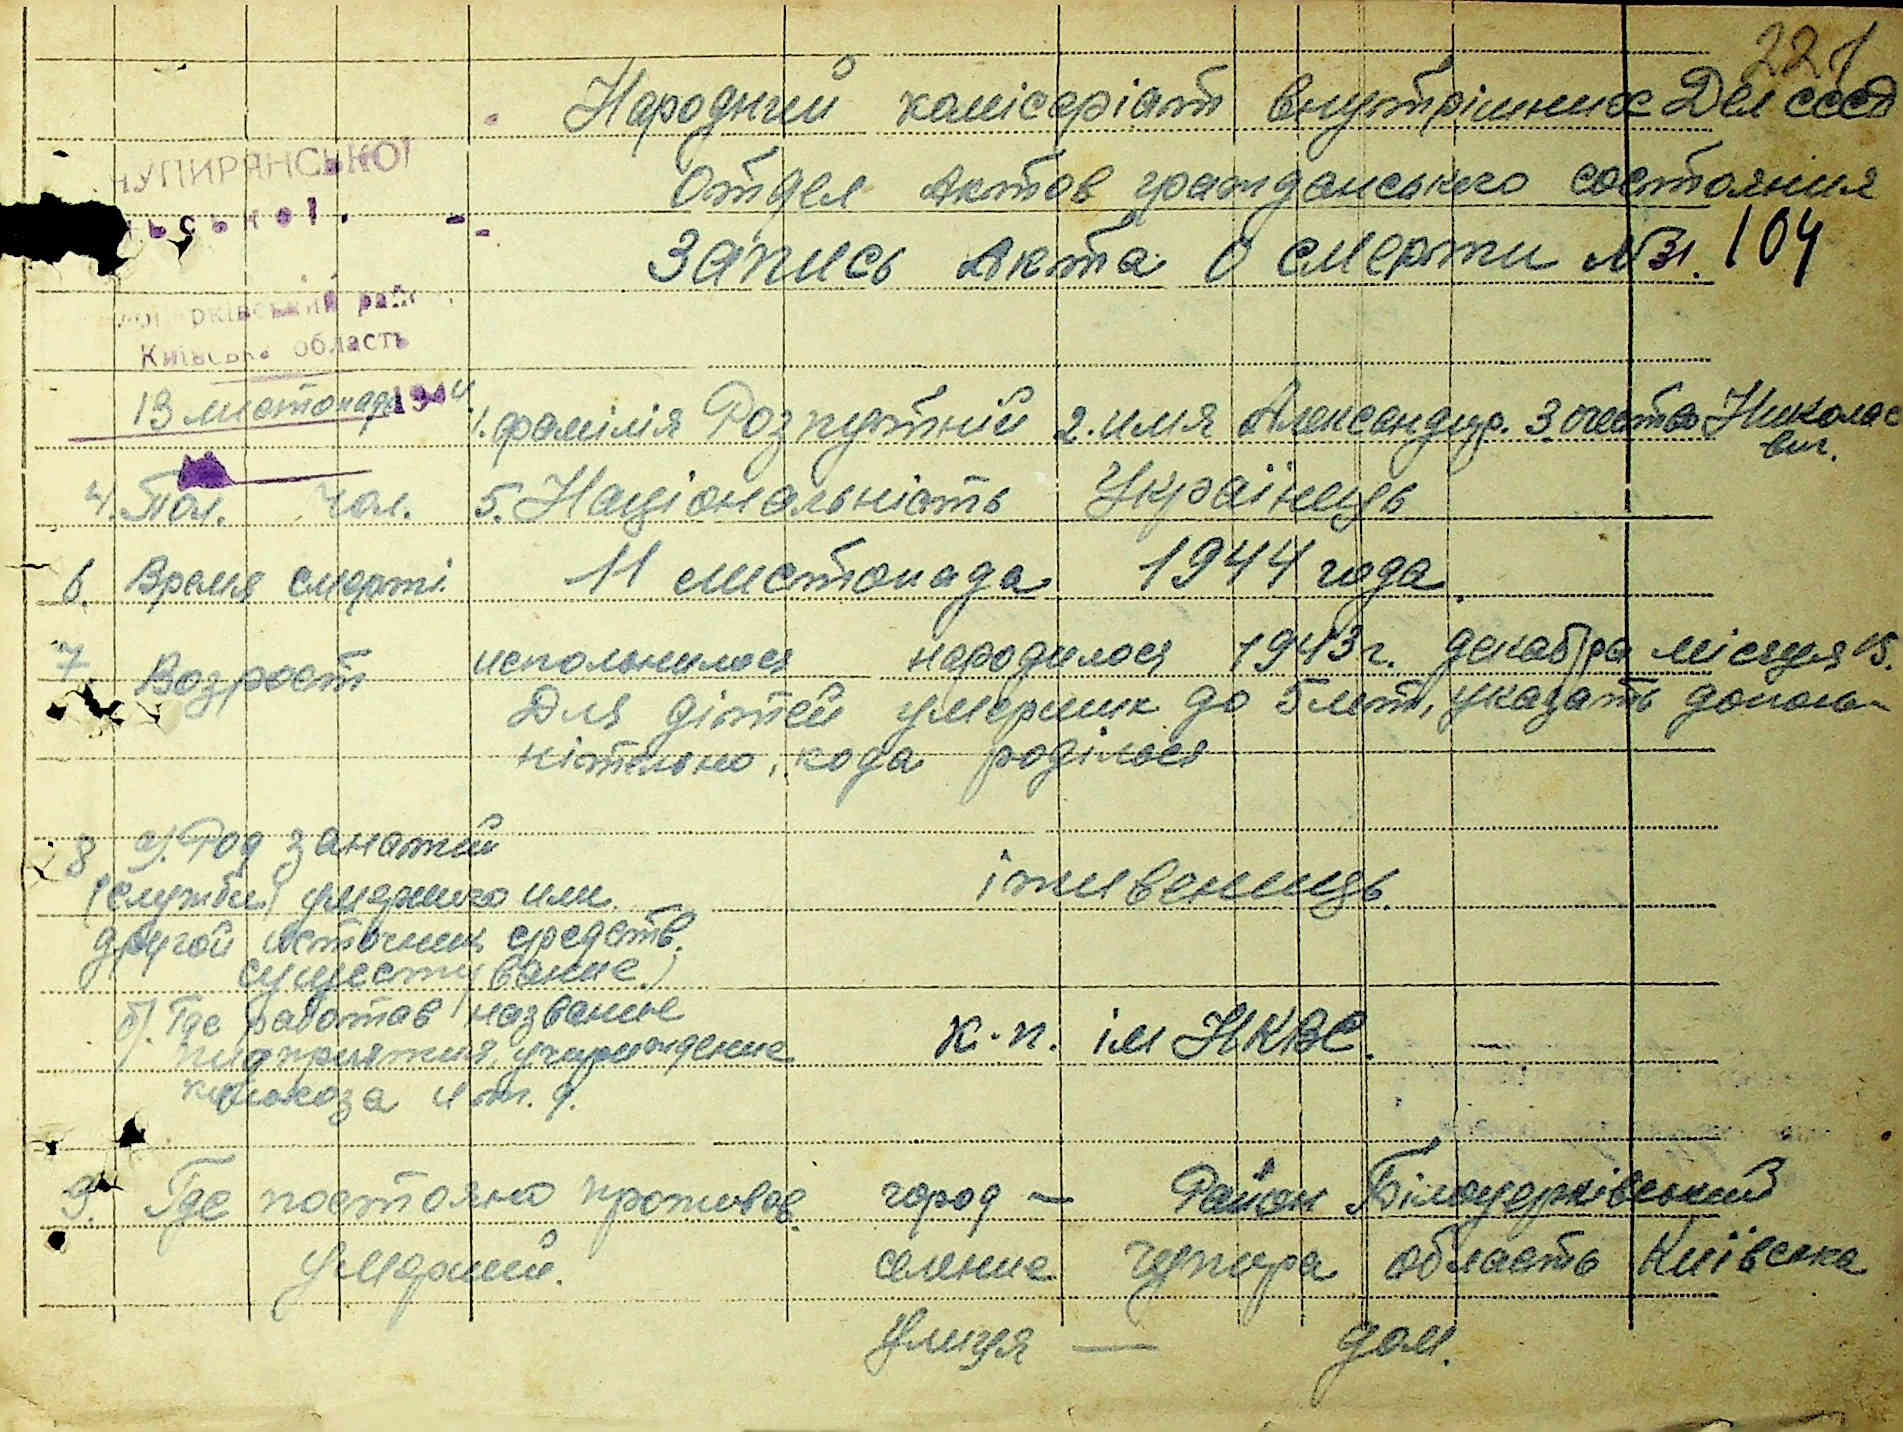 227
Народний комісаріат внутрішних Дел СССР
Отдел Актов гражданського состояния
Запись Акта о смерти № 31. 104
ЧУПИРЯНСЬКОЇ
Київська область
13 листопада 1944
1. фамілія Розпутній 2. имя Александр. 3. очество Николае
вич.
4. Пол. Чол. 5. Національність Українець
6. Время смерті. 11 листопада 1944 года.
7. Возрост испольнилося народилося 1943 г. декабря місяця 15.
Для дітей умерших до 5 лет, указать дополни-
нітельно, кода роділося
8 а). Род занятий
(службы) умершого или
другой источник средств.
существування)
утивенець.
б). Где работав название
пидприятия, учириждение к.п. ім НКВС.
колхоза и т. д.
9. Где постояно проживав город — Район Білоцерківський
умерший. селение Чупира область Київська
Улиця — дом.